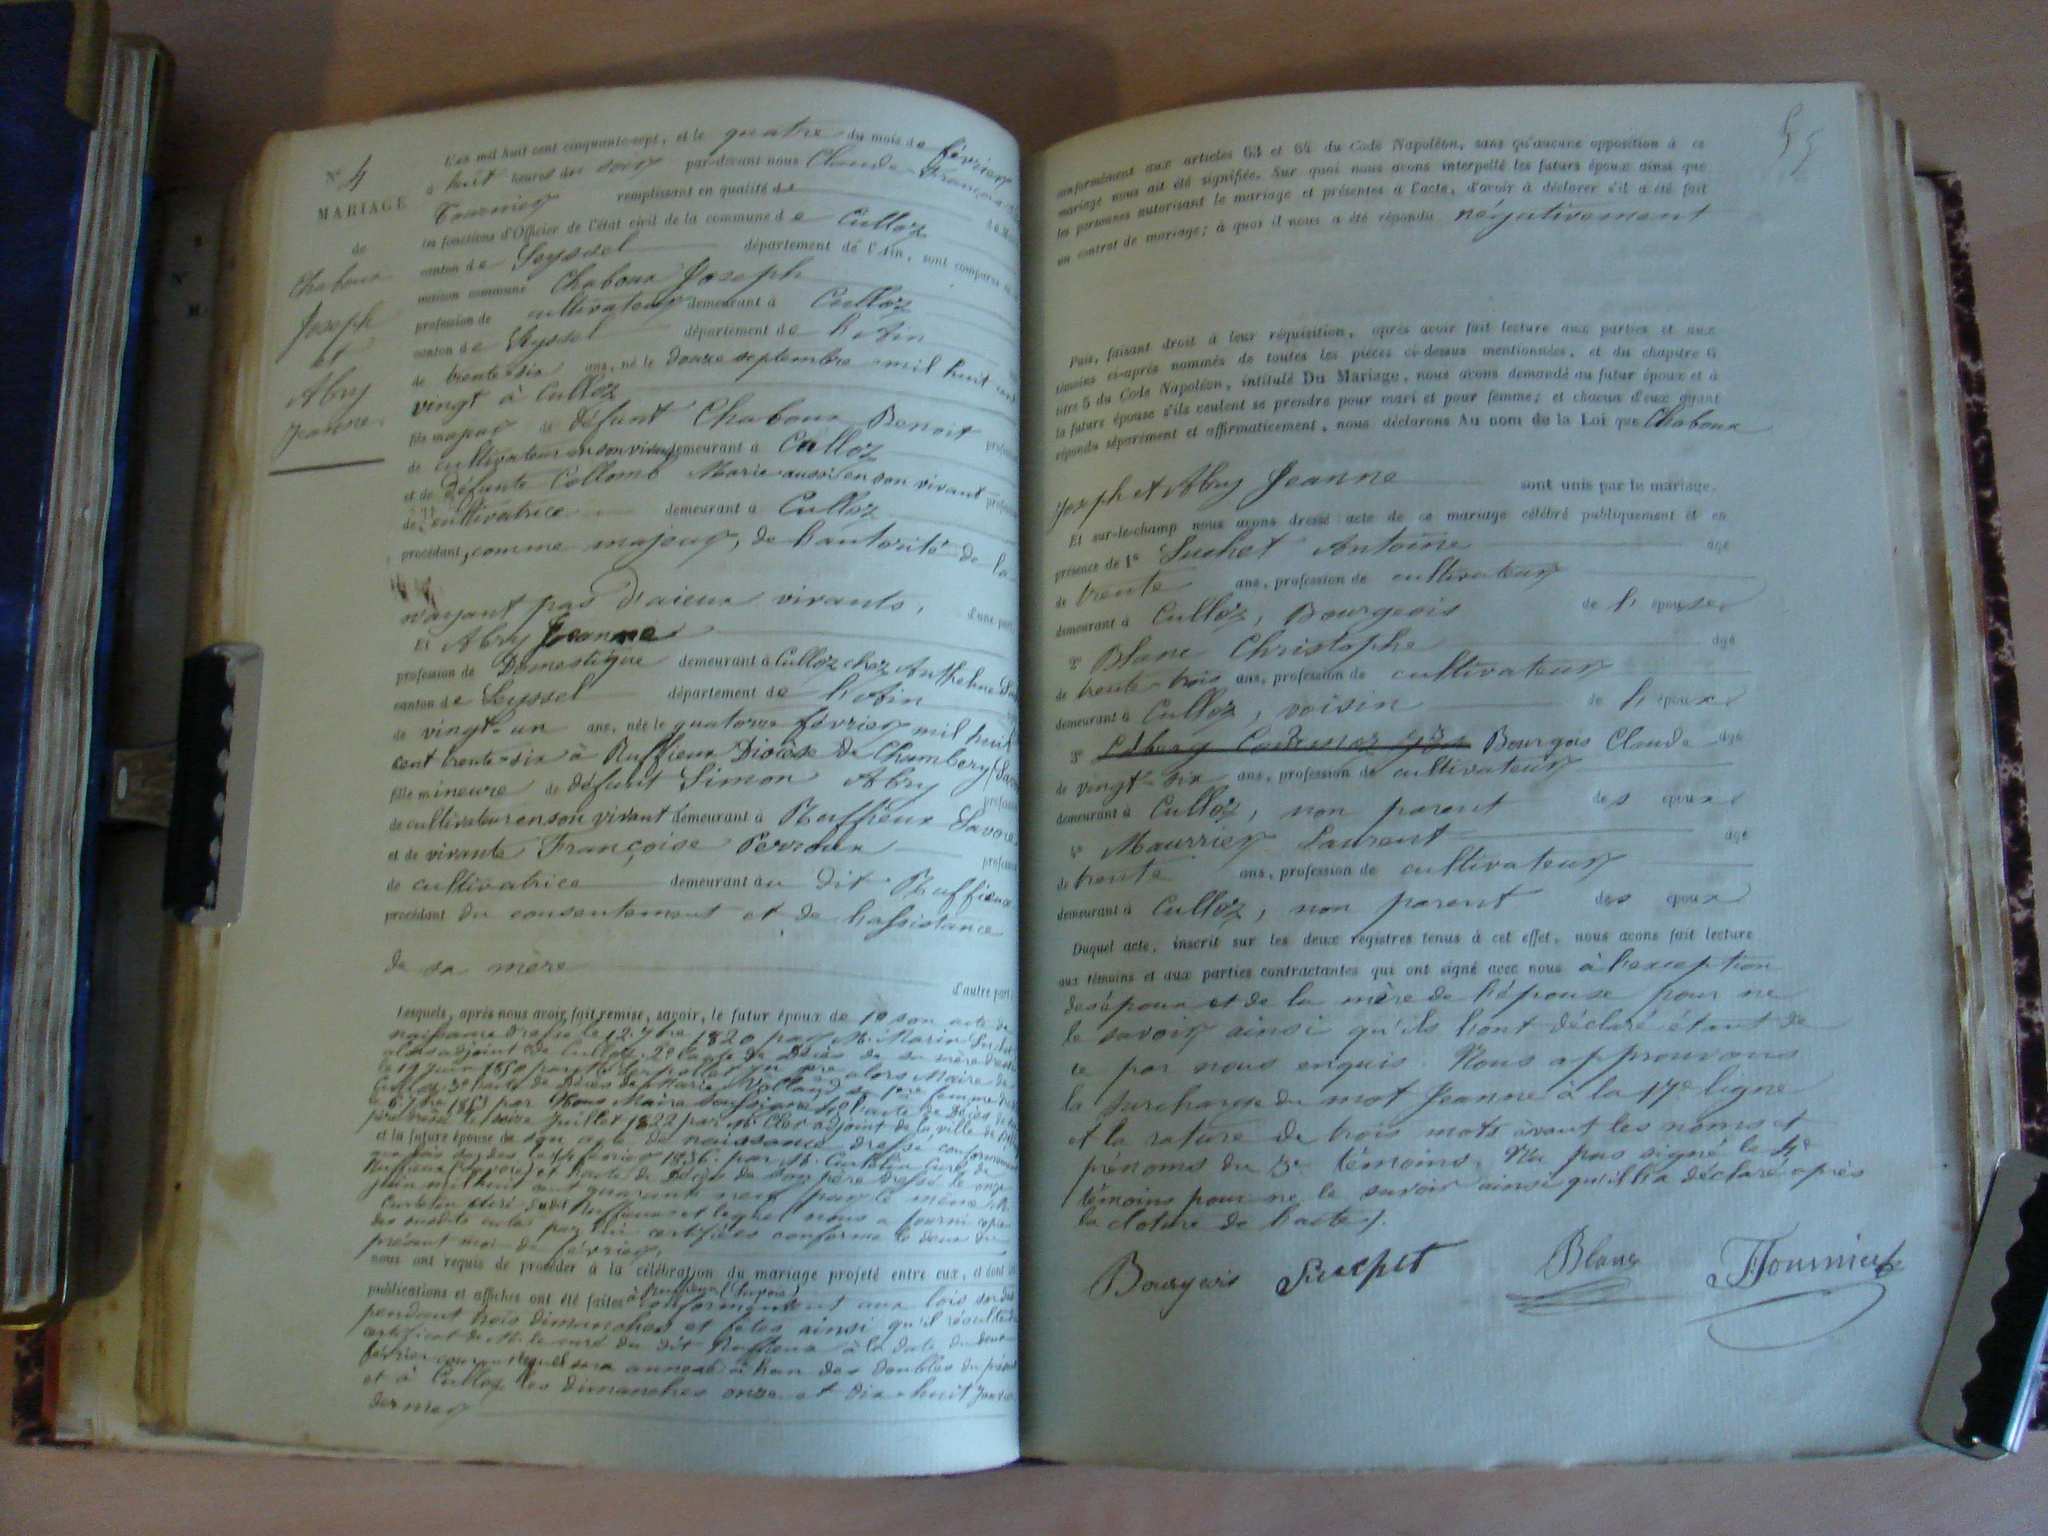 N° 4
MARIAGE
de
Chaboux
Joseph
et
Abry
Jeanne
L'an mil huit cent cinquante-sept, et le quatre du mois de février
à huit heures du soir par-devant nous Claude François
Tournier remplissant en qualité de
les fonctions d'Officier de l'état civil de la commune de Culloz
canton de Seyssel département de l'Ain, sont comparus
maison commune Chaboux Joseph
profession de cultivateur demeurant à Culloz
canton de Seyssel département de l'Ain
de trente-six ans, né le douze septembre mil huit cent
vingt à Culloz
fils majeur de défunt Chaboux Benoit
de cultivateur en son vivant demeurant à Culloz
et de défunte Collomb Marie aussi en son vivant
de cultivatrice demeurant à Culloz
procédant, comme majeur, de l'autorité de la
n'ayant pas d'aieux vivants, d'une part
Et Abry Jeanne
profession de Domestique demeurant à Culloz chez Anthelme
canton de Seyssel département de l'Ain
de vingt-un ans, née le quatorze février mil huit
cent trente-six à Ruffieux Diocèse de Chambery
fille mineure de défunt Simon Abry
de cultivateur en son vivant demeurant à Ruffieux Savoie
et de vivante Françoise Perroux
de cultivatrice demeurant au dit Ruffieux
procédant du consentement et de l'assistance
de sa mère
d'autre part
Lesquels, après nous avoir fait remise, savoir, le futur époux de 1° son acte de
naissance dressé le 12 7bre 1820 par M. Marin
alors adjoint de Culloz, 2° l'acte de décès de sa mère
le 19 juin 1850 par alors Maire de
Culloz 3° l'acte de décès de Marie sa 1ère femme
par Nous Maire soussigné l'acte de décès de
juillet 1822 par M. Clerc adjoint de la ville de
et la future épouse de son acte de naissance dressé conformément
février 1836 par M. Curtelin Curé de
Ruffieux (Savoie) et l'acte de décès de son père dressé le onze
juin mil huit cent quarante neuf par le même M.
Curtelin Curé Ruffieux et lequel nous a fourni
des susdits actes par lui certifiées conforme le deux du
présent mois de février,
nous ont requis de procéder à la célébration du mariage projeté entre eux, et dont les
publications et affiches ont été faites à Ruffieux (Savoie) conformément aux lois
pendant trois dimanches et fêtes ainsi qu'il résulte
certificat de M. le curé du dit Ruffieux à la date du deux
février courant lequel sera annexé à l'un des doubles du présent
et à Culloz les dimanches onze et dix-huit janvier
dernier
conformément aux articles 63 et 64 du Code Napoléon, sans qu'aucune opposition à ce
mariage nous ait été signifiée. Sur quoi nous avons interpellé les futurs époux ainsi que
les personnes autorisant le mariage et présentes à l'acte, d'avoir à déclarer s'il a été fait
un contrat de mariage; à quoi il nous a été répondu négativement
Puis, faisant droit à leur réquisition, après avoir fait lecture aux parties et aux
témoins ci-après nommés de toutes les pièces ci-dessus mentionnées, et du chapitre 6
titre 5 du Code Napoléon, intitulé Du Mariage, nous avons demandé au futur époux et à
la future épouse s'ils veulent se prendre pour mari et pour femme; et chacun d'eux ayant
répondu séparément et affirmativement, nous déclarons Au nom de la Loi que Chaboux
Joseph et Abry Jeanne sont unis par le mariage.
Et sur-le-champ nous avons dressé acte de ce mariage célébré publiquement et en
présence de 1° Suchet Antoine âgé
de trente ans, profession de cultivateur
demeurant à Culloz, Bourgeois de l'épouse
2° Blanc Christophe âgé
de trente-trois ans, profession de cultivateur
demeurant à Culloz, voisin de l'époux
3° Bourgois Claude âgé
de vingt-six ans, profession de cultivateur
demeurant à Culloz, non parent des époux
4° Maurrier Laurent âgé
de trente ans, profession de cultivateur
demeurant à Culloz, non parent des époux
Duquel acte, inscrit sur les deux registres tenus à cet effet, nous avons fait lecture
aux témoins et aux parties contractantes qui ont signé avec nous à l'exception
des époux et de la mère de l'épouse pour ne
le savoir ainsi qu'ils l'ont déclaré étant de
ce par nous enquis. Nous approuvons
la surcharge du mot Jeanne à la 17e ligne
et la rature de trois mots avant les noms et
prénoms du 3e témoins. N'a pas signé le 4e
témoins pour ne le savoir ainsi qu'il l'a déclaré après
la cloture de l'acte.
Bourgeois Suchet Blanc Tournier